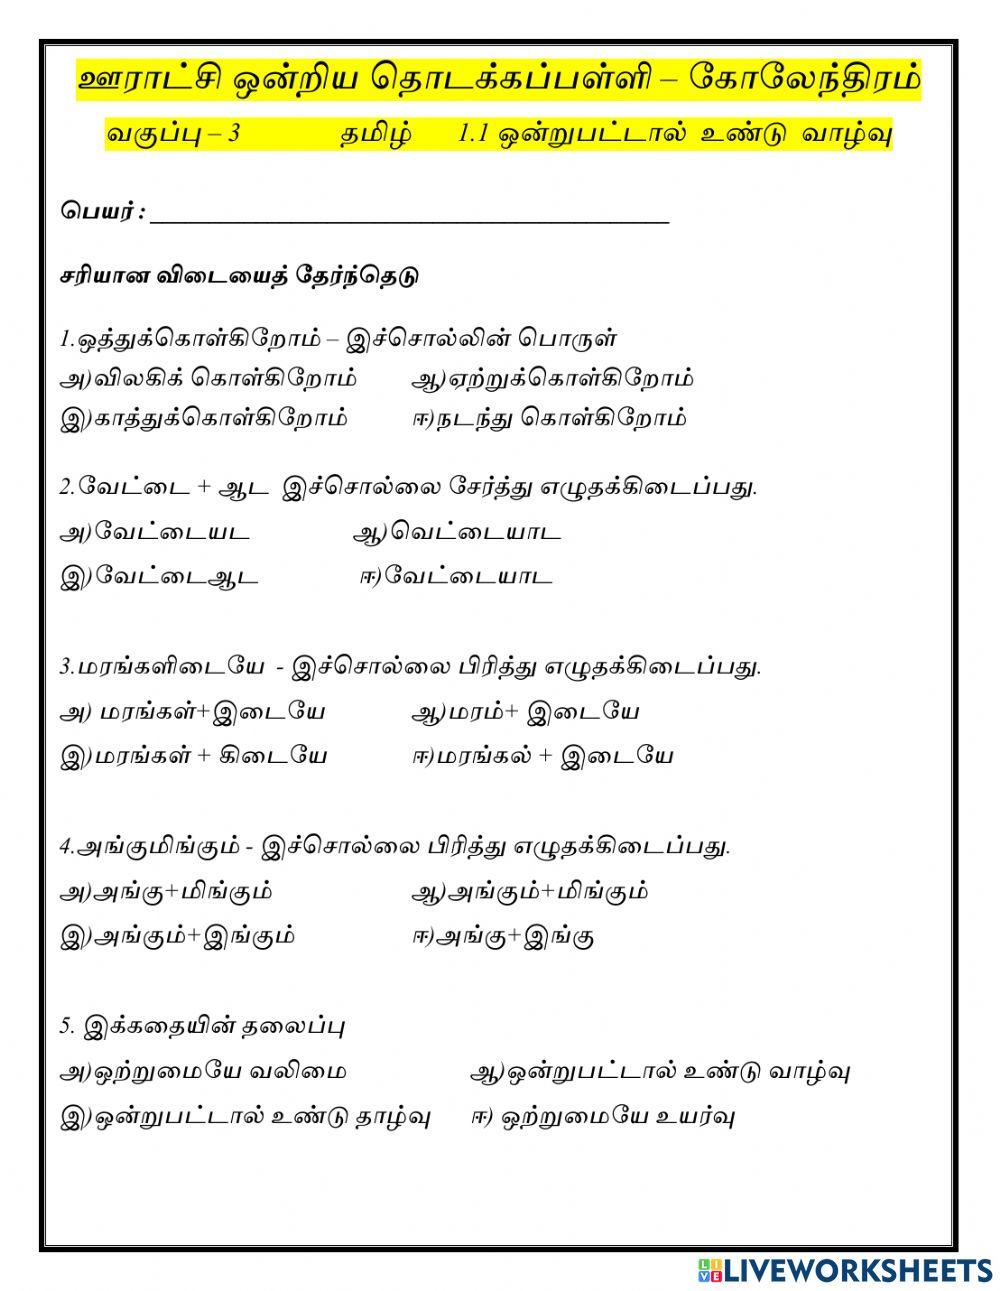 ஊராட்சி ஒன்றிய தொடக்கப்பள்ளி – கோலேந்திரம்
வகுப்பு – 3 தமிழ் 1.1 ஒன்றுபட்டால் உண்டு வாழ்வு
பெயர் : ________________________________________
சரியான விடையைத் தேர்ந்தெடு
1.ஒத்துக்கொள்கிறோம் – இச்சொல்லின் பொருள்
அ)விலகிக் கொள்கிறோம் ஆ)ஏற்றுக்கொள்கிறோம்
இ)காத்துக்கொள்கிறோம் ஈ)நடந்து கொள்கிறோம்
2.வேட்டை + ஆட இச்சொல்லை சேர்த்து எழுதக்கிடைப்பது.
அ)வேட்டையட ஆ)வெட்டையாட
இ)வேட்டைஆட ஈ)வேட்டையாட
3.மரங்களிடையே - இச்சொல்லை பிரித்து எழுதக்கிடைப்பது.
அ) மரங்கள்+இடையே ஆ)மரம்+ இடையே
இ)மரங்கள் + கிடையே ஈ)மரங்கல் + இடையே
4.அங்குமிங்கும் - இச்சொல்லை பிரித்து எழுதக்கிடைப்பது.
அ)அங்கு+மிங்கும் ஆ)அங்கும்+மிங்கும்
இ)அங்கும்+இங்கும் ஈ)அங்கு+இங்கு
5. இக்கதையின் தலைப்பு
அ)ஒற்றுமையே வலிமை ஆ)ஒன்றுபட்டால் உண்டு வாழ்வு
இ)ஒன்றுபட்டால் உண்டு தாழ்வு ஈ) ஒற்றுமையே உயர்வு
LIVE LIVEWORKSHEETS